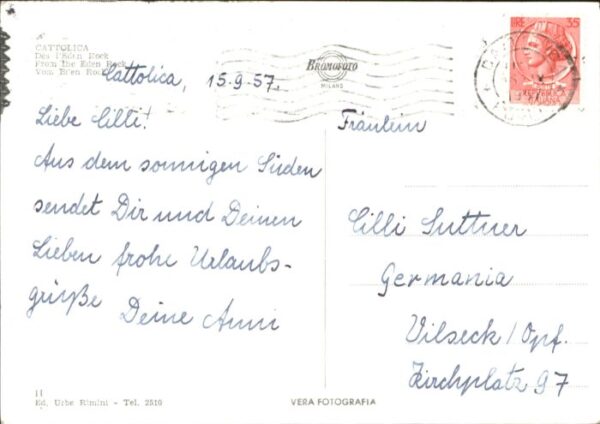 CATTOLICA
Des l'Eden Rock
From the Eden Rock
Vom Eden Rock
Cattolica, 15.9.57.
Liebe Cilli!
Aus dem sonnigen Süden
sendet Dir und Deinen
Lieben frohe Urlaubs-
grüße Deine Anni
BROMOFOTO
MILANO
LIRE 35
REPUBBLICA
ITALIANA
Fräulein
Cilli Suttner
Germania
Vilseck/Opf.
Kirchplatz 97
Ed. Urbe Rimini - Tel. 2510
VERA FOTOGRAFIA